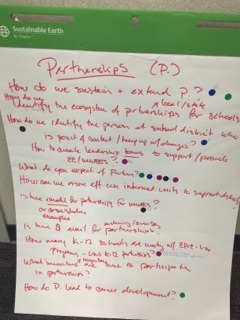 Sustainable Earth
by Staples
Partnerships (P.)
How do we sustain + extend p.?
local/state
How do we
identify the ecosystem of partnerships for schools
How do we identify the person at school district who
is point of contact / keep up w/ changes?
How to create leadership teams to support / provide
What do you expect of Partners?
How can we more eff use internal units to support
Is there model for partnerships for
or case studies
examples
Is there a model for partnerships
How many K-12 schools are
Program - UNCG K-12 partners?
What incentives are there to participate
in partnerships?
How do P. lead to career development?